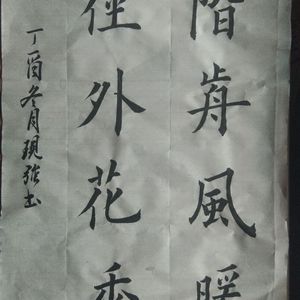 階前風暖
径外花香
丁酉冬月現強書